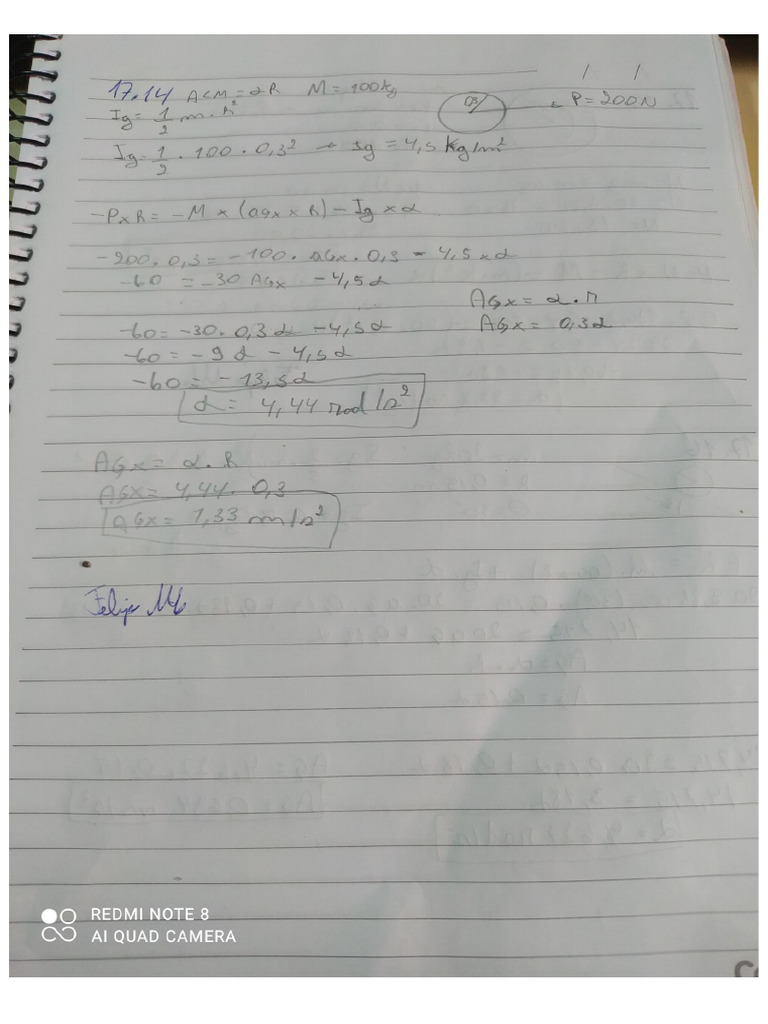 / /
17.14 ACM = αR M = 100kg
03/ P = 200N
Ig = 1/2 m . R²
Ig = 1/2 . 100 . 0,3² → Ig = 4,5 Kg/m²
-P x R = -M x (aGx x R) - Ig x α
-200 . 0,3 = -100 . AGx . 0,3 - 4,5 x α
-60 = -30 AGx - 4,5α
AGx = α . r
-60 = -30 . 0,3α - 4,5α
AGx = 0,3α
-60 = -9α - 4,5α
-60 = -13,5α
α = 4,44 rad/s²
AGx = α . R
AGx = 4,44 . 0,3
AGx = 1,33 m/s²
Felipe
REDMI NOTE 8
AI QUAD CAMERA